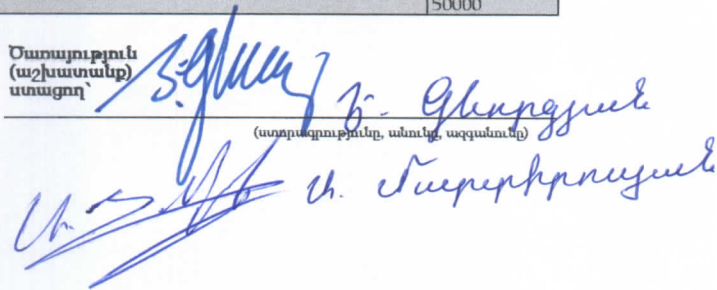 50000
Ծառայություն
(աշխատանք)
ստացող՝
Գևորգյան
(ստորագրությունը, անունը, ազգանունը)
Ա. Մարտիրոսյան